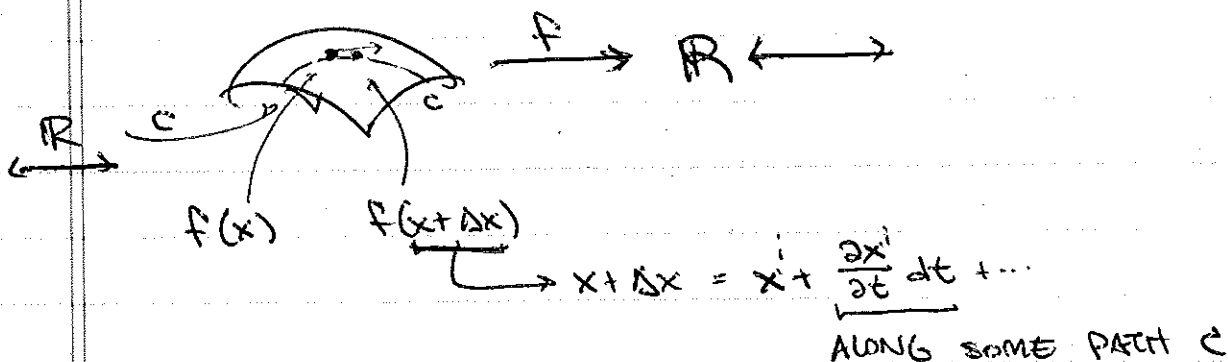 f → ℝ ↔
c
c
ℝ
f(x) f(x+Δx)
→ x+Δx = xⁱ + ∂xⁱ/∂t dt + ...
ALONG SOME PATH C